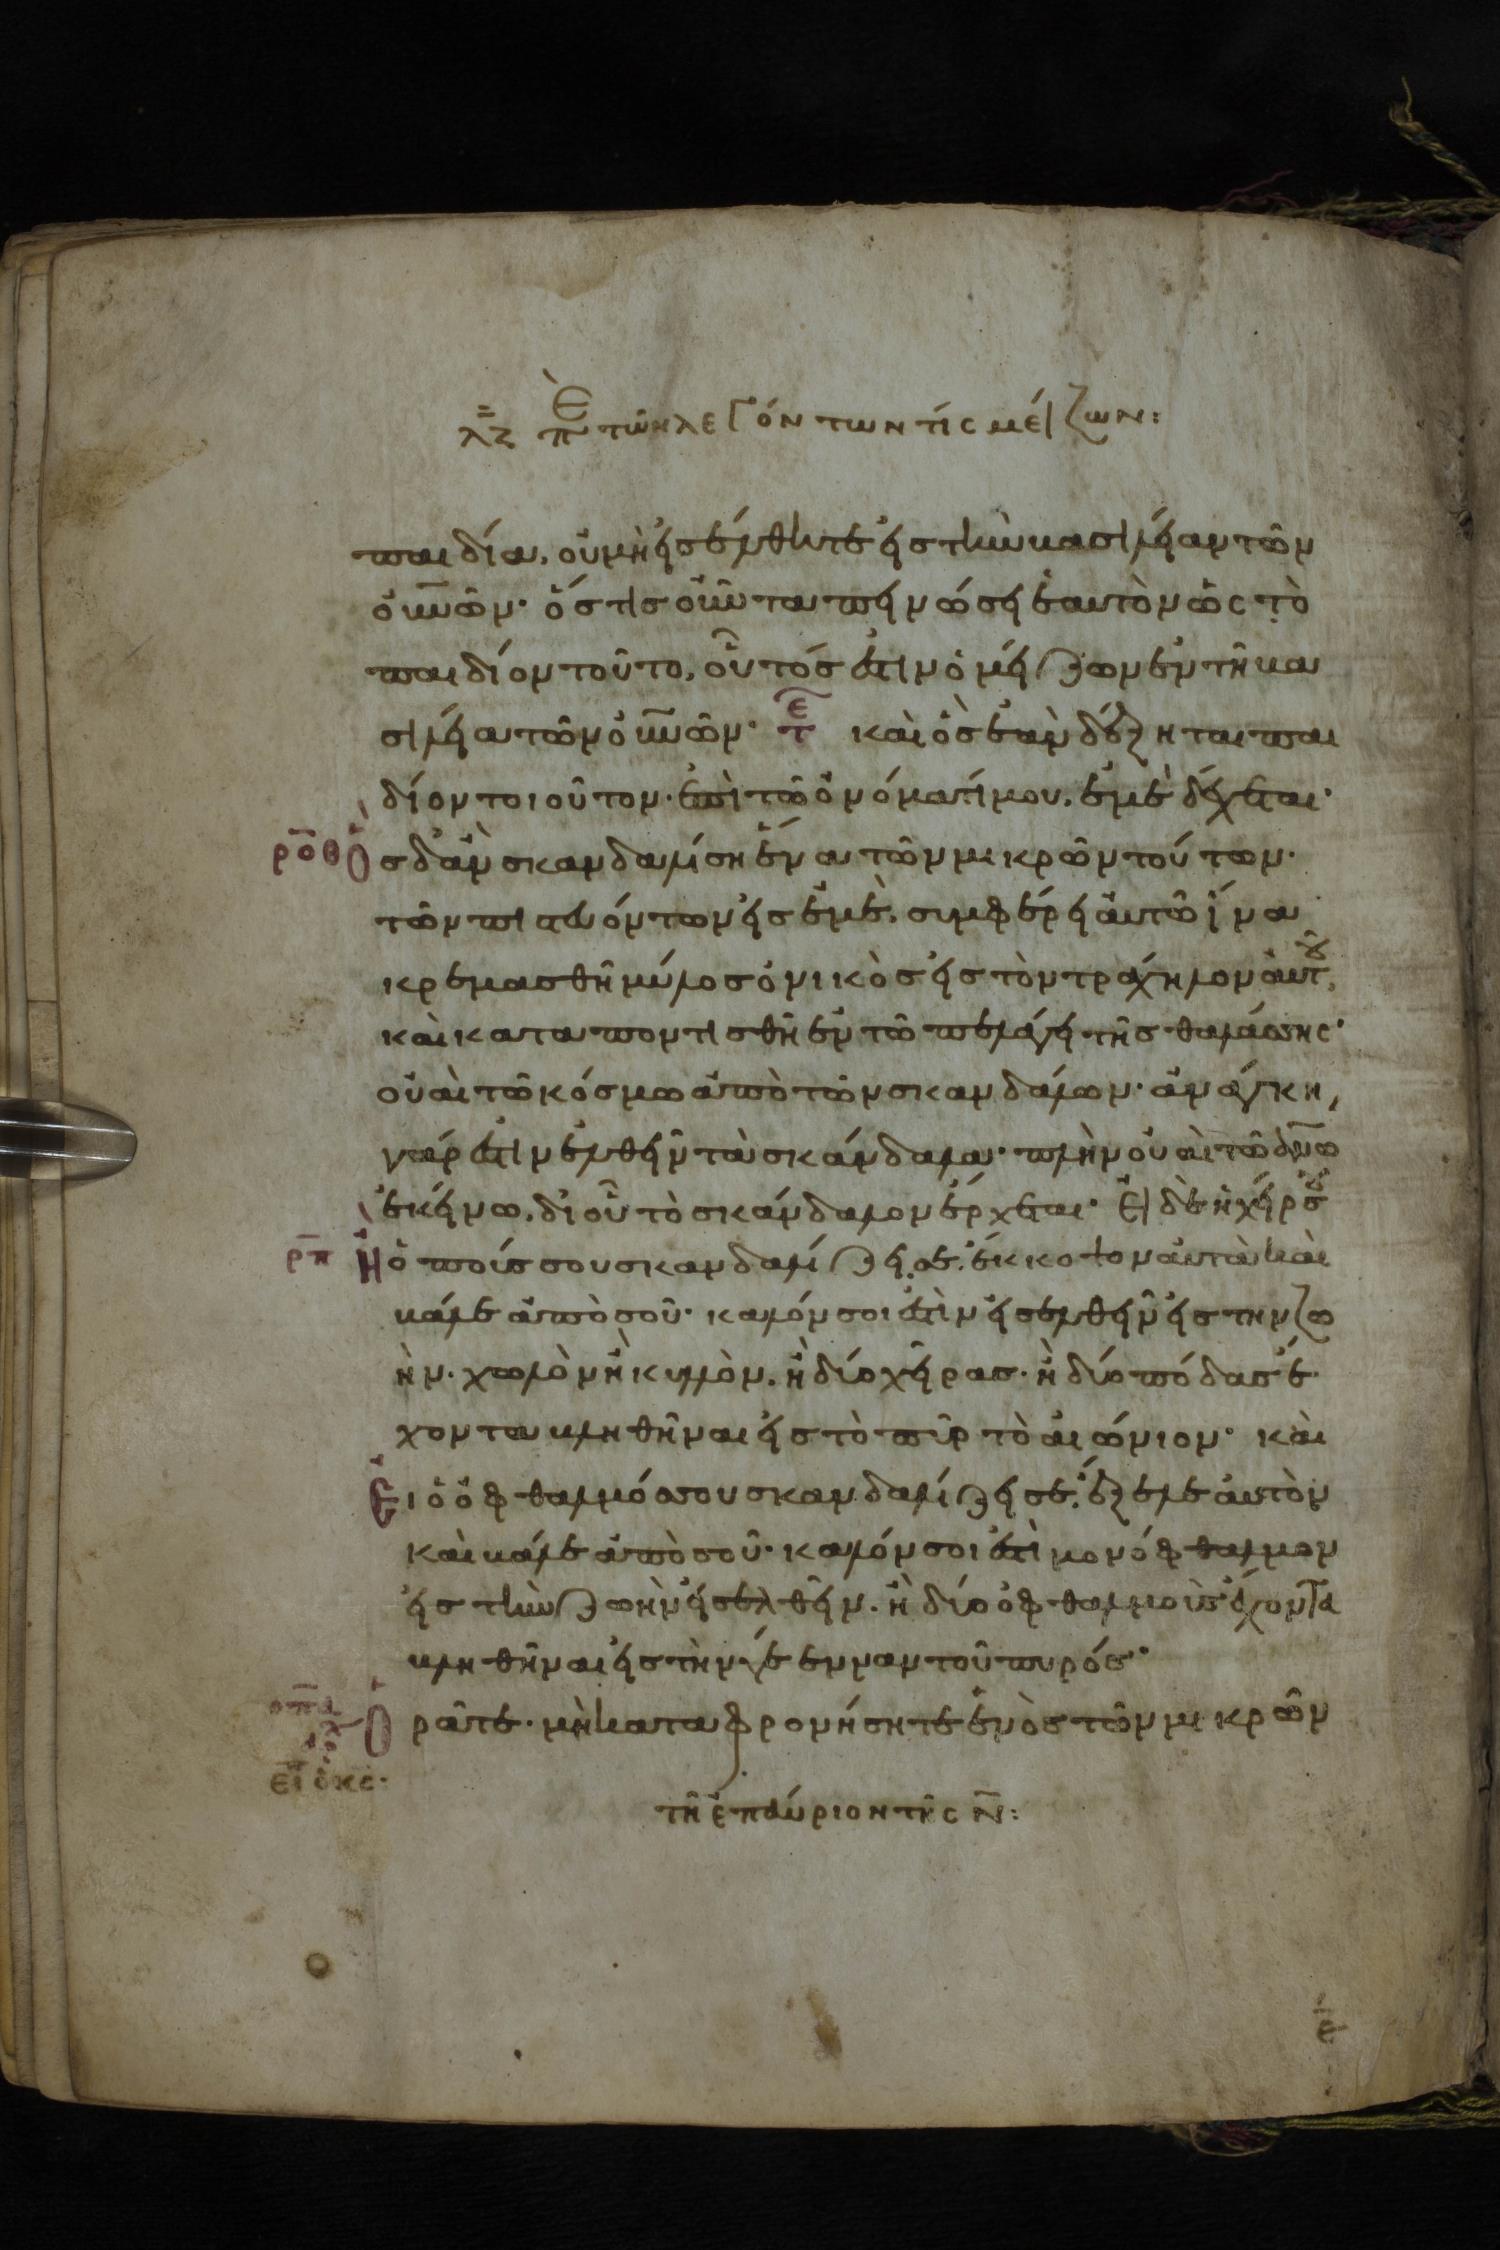 λζ Περὶ τῶν λεγόντων τίς μείζων:
παιδία, οὐ μὴ εἰσέλθητε εἰς τὴν βασιλείαν τῶν
οὐ̅ν̅ῶν· ὅστις οὖν ταπεινώσει ἑαυτὸν ὡς τὸ
παιδίον τοῦτο, οὗτός ἐστιν ὁ μείζων ἐν τῆ βα
σιλεία τῶν οὐ̅ν̅ῶν· τε καὶ ὃς ἐὰν δέξηται παι
δίον τοιοῦτον· ἐπὶ τῶ ὀνόματί μου, ἐμὲ δέχεται·
ροθ Ὃ
ς δ' ἂν σκανδαλίση ἕνα τῶν μικρῶν τούτων·
τῶν πιστευόντων εἰς ἐμὲ, συμφέρει αὐτῶ ἵνα
κρεμασθῆ μύλος ὀνικὸς εἰς τὸν τράχηλον αὐτοῦ,
καὶ καταποντισθῆ ἐν τῶ πελάγει τῆς θαλάσσης·
οὐαὶ τῶ κόσμω ἀπὸ τῶν σκανδάλων· ἀνάγκη,
γάρ ἐστιν ἐλθεῖν τὰ σκάνδαλα· πλὴν οὐαὶ τῶ ἀ̅ν̅ω
ἐκείνω, δι' οὗ τὸ σκάνδαλον ἔρχεται· Εἰ δὲ ἡ χείρ σου
ρπ Ἢ ὁ πούς σου σκανδαλίζει σε, ἔκκοψον αὐτὰ καὶ
βάλε ἀπὸ σοῦ· καλόν σοι ἐστὶν εἰσελθεῖν εἰς την ζω
ὴν· χωλὸν ἢ κυλλὸν, ἢ δύο χεῖρας· ἢ δύο πόδας ἔ
χοντα βληθῆναι εἰς τὸ πῦρ τὸ αἰώνιον· καὶ
Εἰ ὁ ὀφθαλμός σου σκανδαλίζει σε, ἔξελε αὐτὸν
καὶ βάλε ἀπὸ σοῦ· καλόν σοι ἐστὶ μονόφθαλμον
εἰς τὴν ζωὴν εἰσελθεῖν· ἢ δύο ὀφθαλμοὺς ἔχοντα
βληθῆναι εἰς τὴν γέενναν τοῦ πυρός·
Ὁ
ρᾶτε· μὴ καταφρονήσητε ἑνὸς τῶν μικρῶν
εἶ ὁ κς·
τῆ ἐπαύριον τῆς Ν̅: